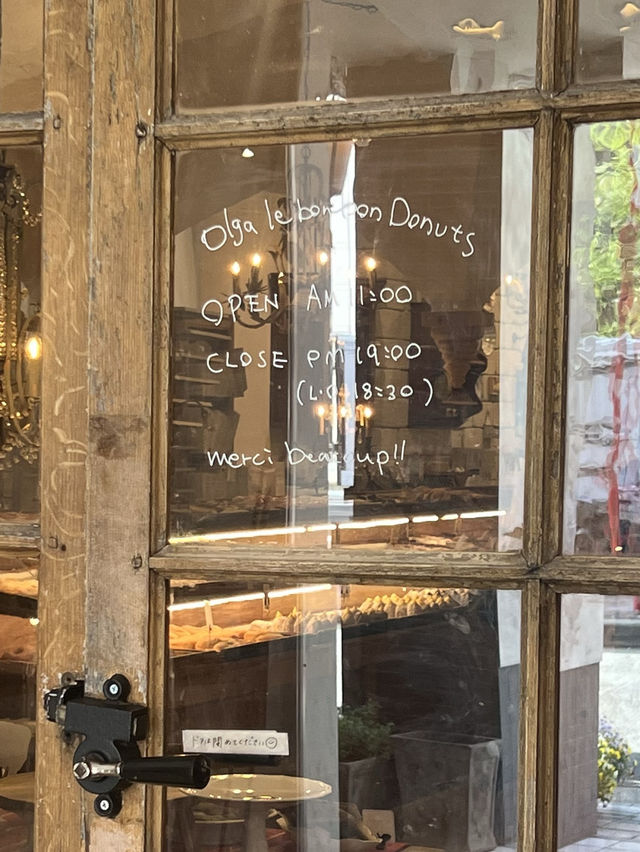 Olga le bonbon Donuts
OPEN AM 11:00
CLOSE PM 19:00
(L.O 18:30)
merci beaucoup!!
ドアは閉めてください